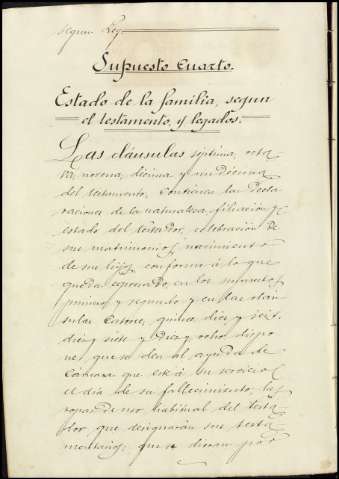 segun Ley
Supuesto Cuarto.
Estado de la familia, segun
el testamento, y legados.
Las cláusulas séptima, octa
va, novena, décima y undécima
del testamento, contienen las decla
raciones de la naturaleza, filiacion y
estado del testador, celebracion de
sus matrimonios, nacimiento
de sus hijos, conforme á lo que
queda espresado en los supuestos
primero y segundo y en las cláu
sulas catorce, quince, diez y seis,
diez y siete y diez y ocho dispo
ne que se den al ayuda de
Cámara que esté á su servicio
el dia de su fallecimiento, las
ropas de uso habitual del testa
dor que designarán sus testa
mentarios; que se dieran por